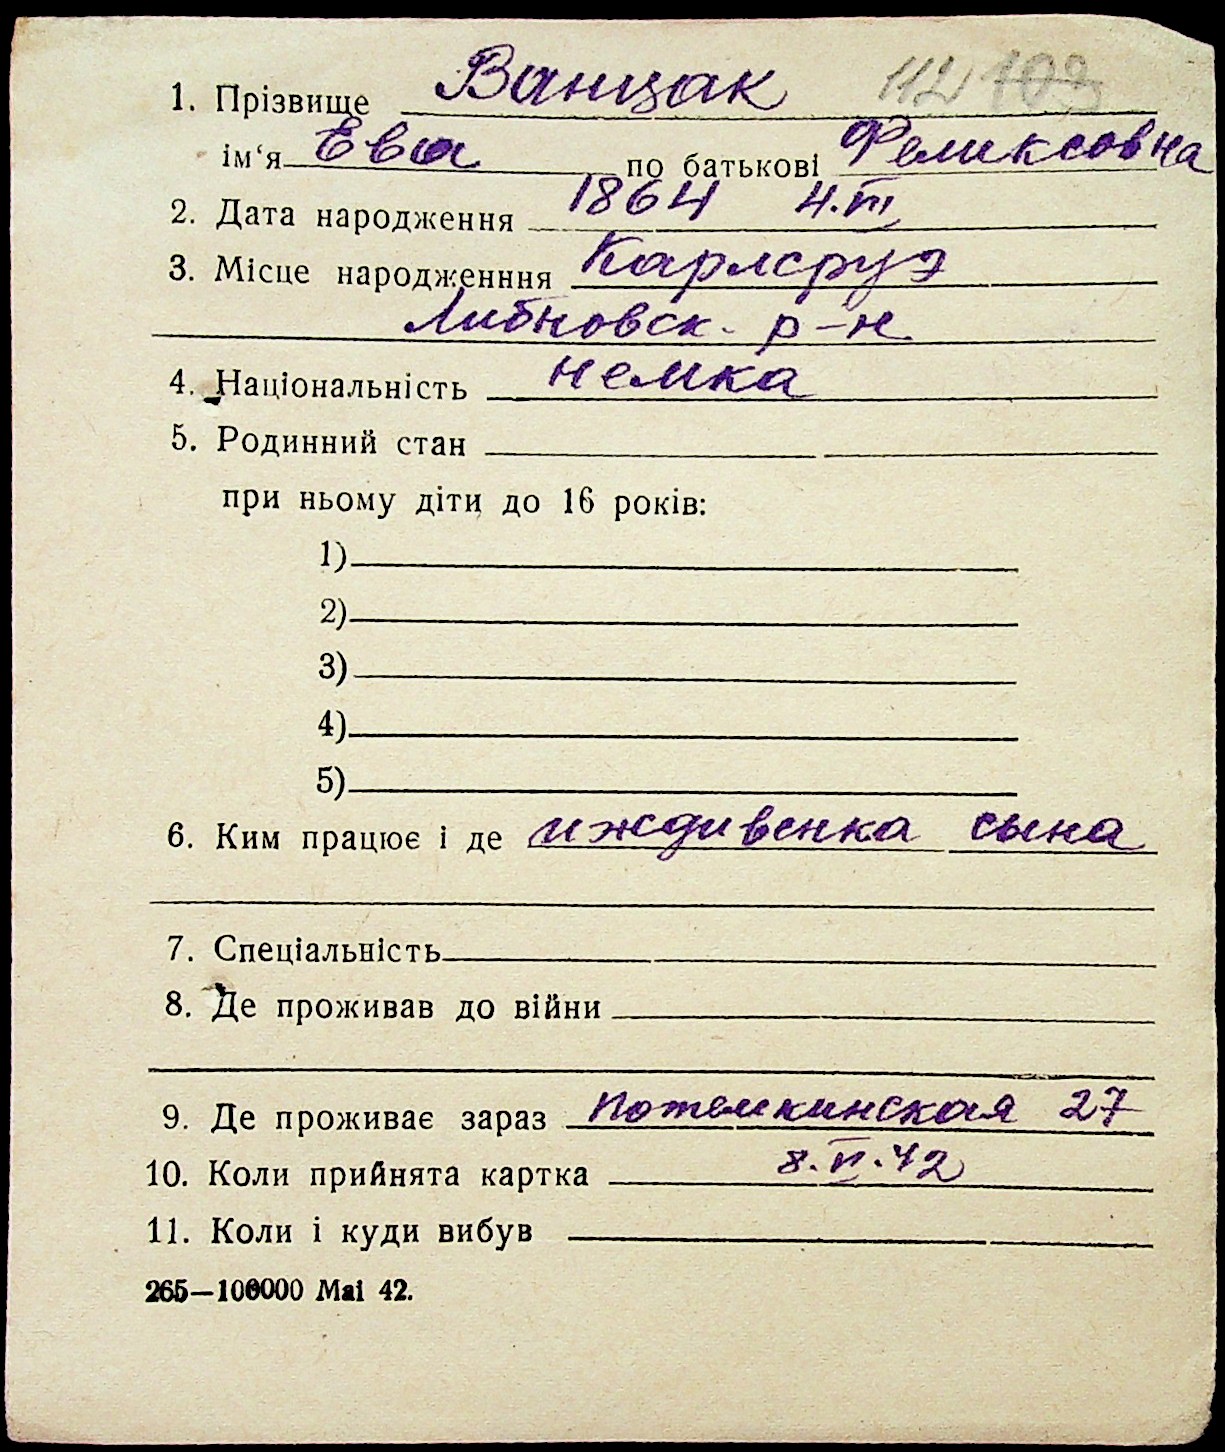 1. Прізвище Ванцак 112 103
ім‘я Ева по батькові Феликсовна
2. Дата народження 1864 4.III
3. Місце народженння Карлсруэ
Либновск. р-н
4. Національність немка
5. Родинний стан
при ньому діти до 16 років:
1)
2)
3)
4)
5)
6. Ким працює і де иждивенка сына
7. Спеціальність
8. Де проживав до війни
9. Де проживає зараз Потемкинская 27
10. Коли прийнята картка 8.VI.42
11. Коли і куди вибув
265—100000 Mai 42.